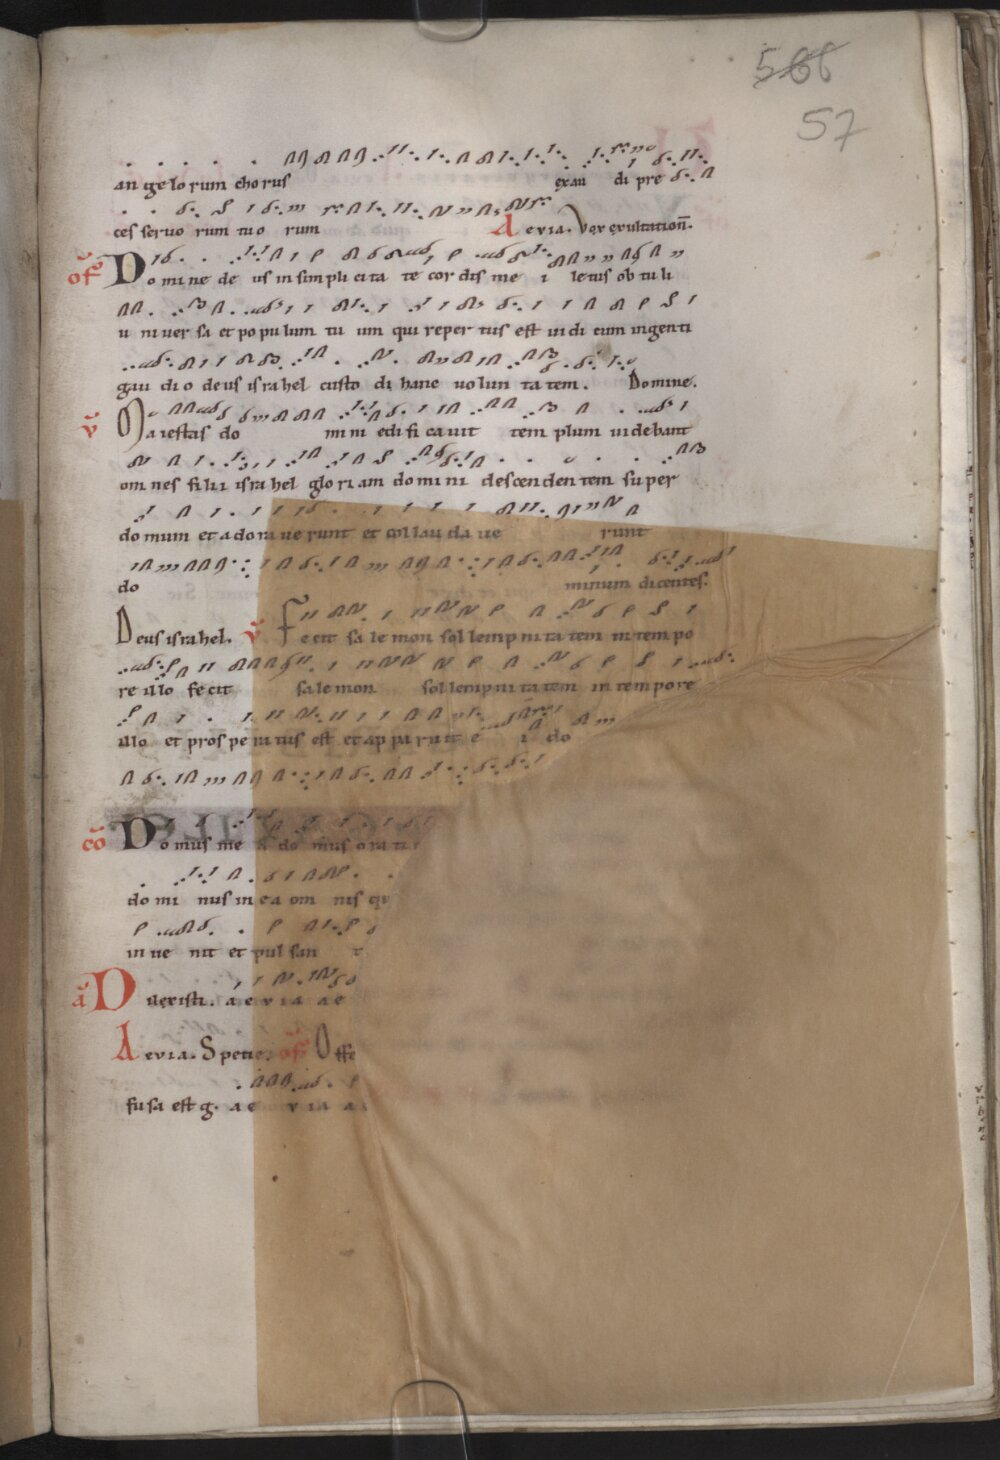 566
57
an ge lo rum cho rus exau di pre
ces servo rum tuo rum Aevia. Vox exultation̄.
of̄ Do mi ne de us in sim pli cita te cor dis me i letus ob tu li
u ni ver sa et po pu lum tu um qui reper tus est vi di cum ingenti
gau di o deus isra hel custo di hanc volun ta tem. Domine.
v̄ Ma iestas do mi ni edi fi ca vit tem plum videbant
om nes filii isra hel glo ri am do mi ni descenden tem su per
do mum et a do ra ve runt et col lau da ve runt
do minum dicentes.
Deus isra hel. v̄ Fe cit sa le mon sol lemp ni ta tem in tem po
re illo fe cit sa le mon sol lemp ni ta tem in tem po re
illo et pros pe ra tus est et ap pa ru it e i do
cō Do mus me a do mus ora ti
do mi nus in ea om nis qu
in ve nit et pul san t
a Dilexisti. a e v i a a e
Aevia. Specie. of̄ Offe
fu sa est g. a e v i a a